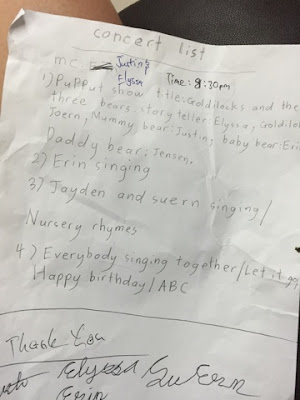 concert list
mc. Justin &
Elyssa Time: 8:30pm
1) Pupput show title: Goldilocks and the
three bears. story teller: Elyssa, Goldiloc
Joern, Mummy bear: Justin, baby bear: Eri
Daddy bear: Jensen.
2) Erin singing
3) Jayden and suern singing/
Nursery rhymes
4) Everybody singing together/Let it go,
Happy birthday/ABC
Thank You
Elyssa SuErn
Erin